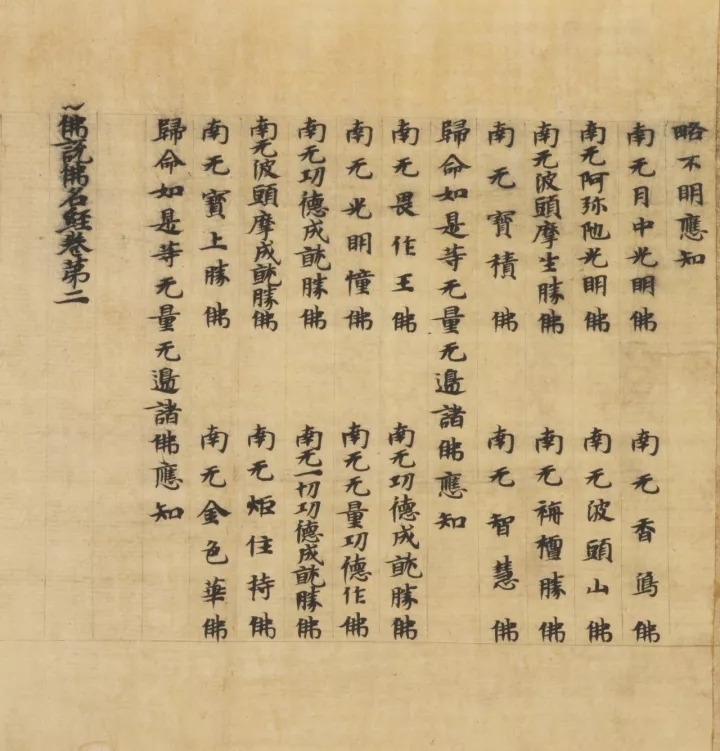 略不明應知
南无月中光明佛　南无香鴈佛
南无阿弥陁光明佛　南无波頭山佛
南无波頭摩生勝佛　南无栴檀勝佛
南无寶積佛　南无智慧佛
歸命如是等无量无邊諸佛應知
南无畏作王佛　南无功德成就勝佛
南无光明幢佛　南无无量功德作佛
南无功德成就勝佛　南无一切功德成就勝佛
南无波頭摩成就勝佛　南无炬住持佛
南无寶上勝佛　南无金色華佛
歸命如是等无量无邊諸佛應知
佛說佛名經卷第二